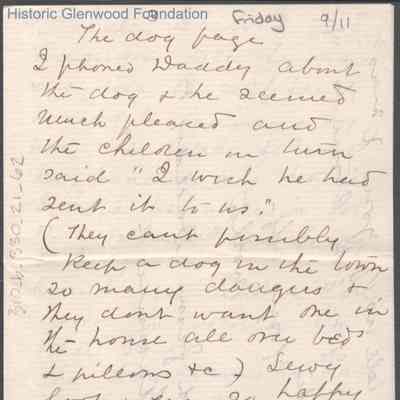 Historic Glenwood Foundation
3 Friday 9/11
The dog page
I phoned Daddy about
the dog & he seemed
much pleased and
the children in turn
said "I wish he had
sent it to us."
(They cant possibly
keep a dog in the town
so many dangers &
they dont want one in
the house all over beds
& pillows &c)
happy